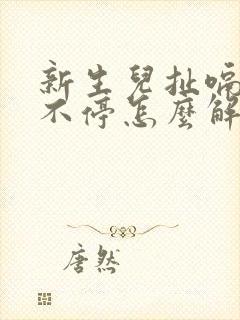 新生兒扯嗝
不停怎麼解
唐然